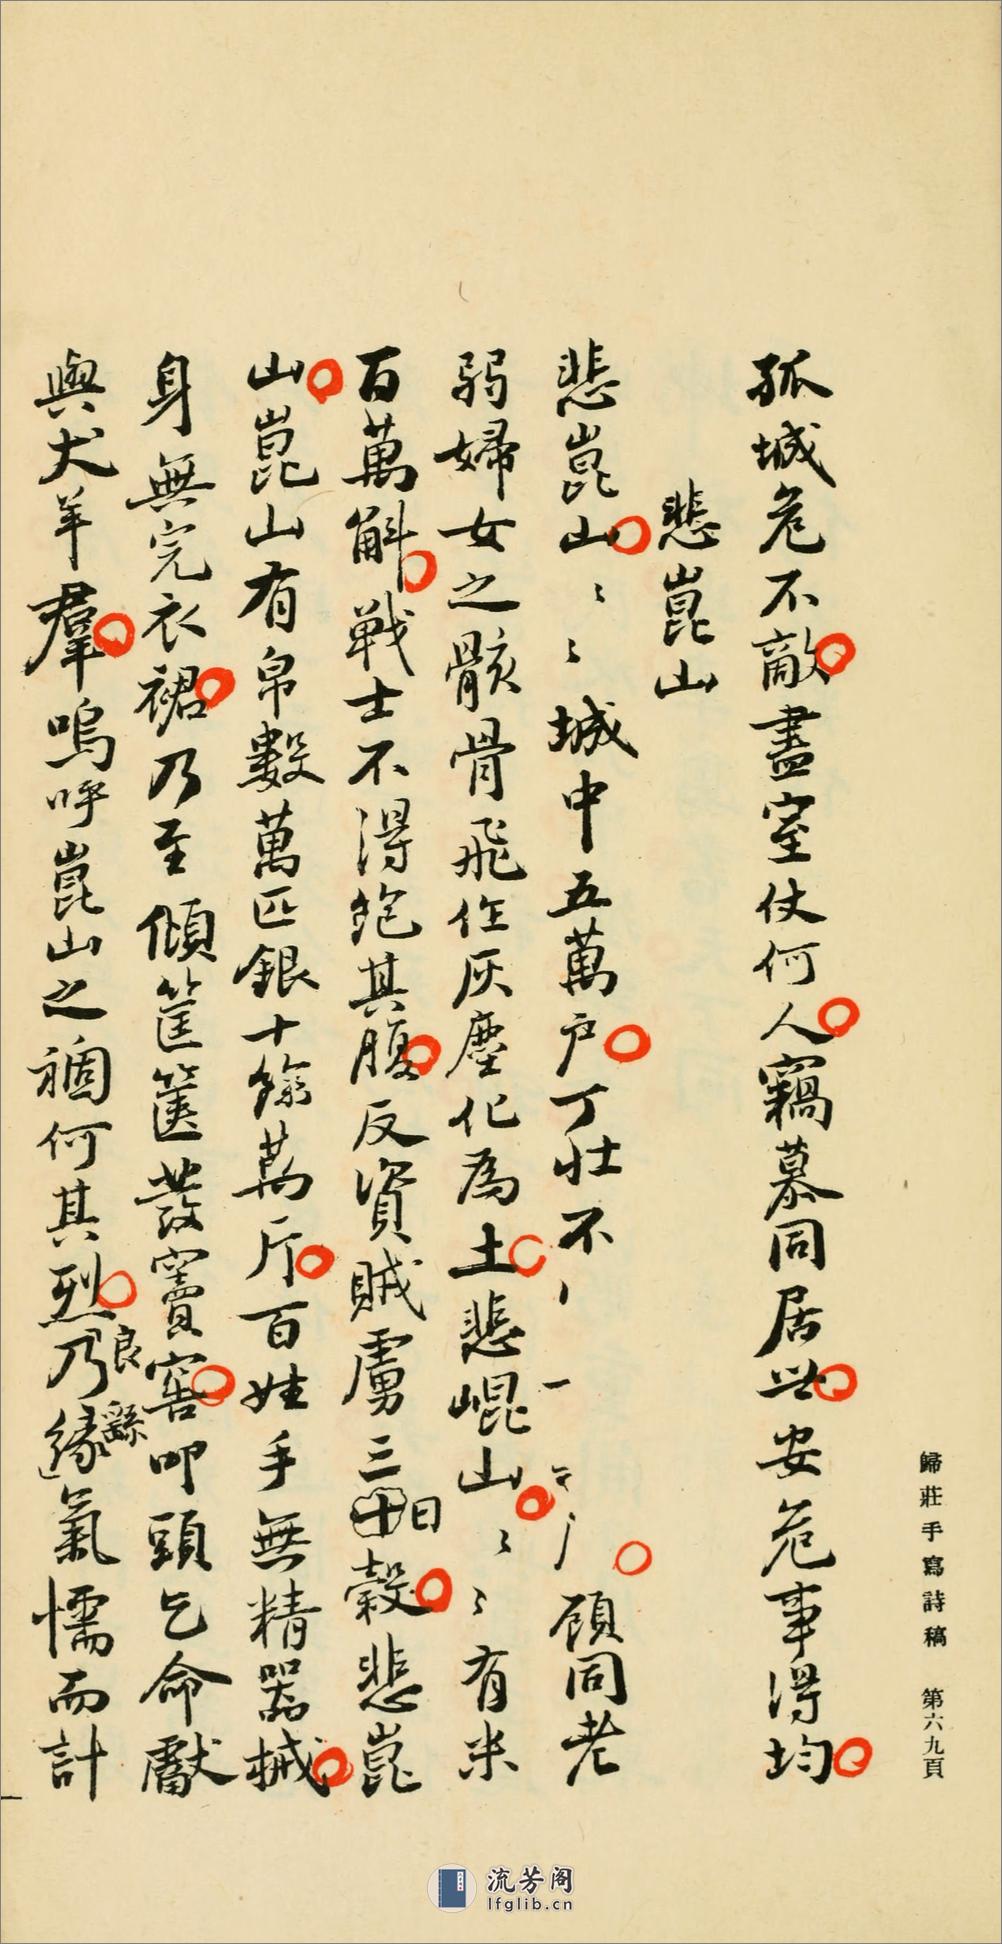 歸莊手寫詩稿 第六九頁
孤城危不敵盡室仗何人竊慕同居世安危事得均
悲崑山
悲崑山〻〻城中五萬户丁壯不顧同老
弱婦女之骸骨飛作灰塵化為土悲崐山〻〻有米
百萬斛戰士不得飽其腹反資賊虜三十日穀悲崑
山崑山有帛數萬匹銀十餘萬斤百姓手無精器械
身無完衣裙乃至傾筐篋發竇窖叩頭乞命獻
與犬羊羣嗚呼崑山之禍何其烈乃緣氣懦而計
良繇
流芳阁
lfglib.cn